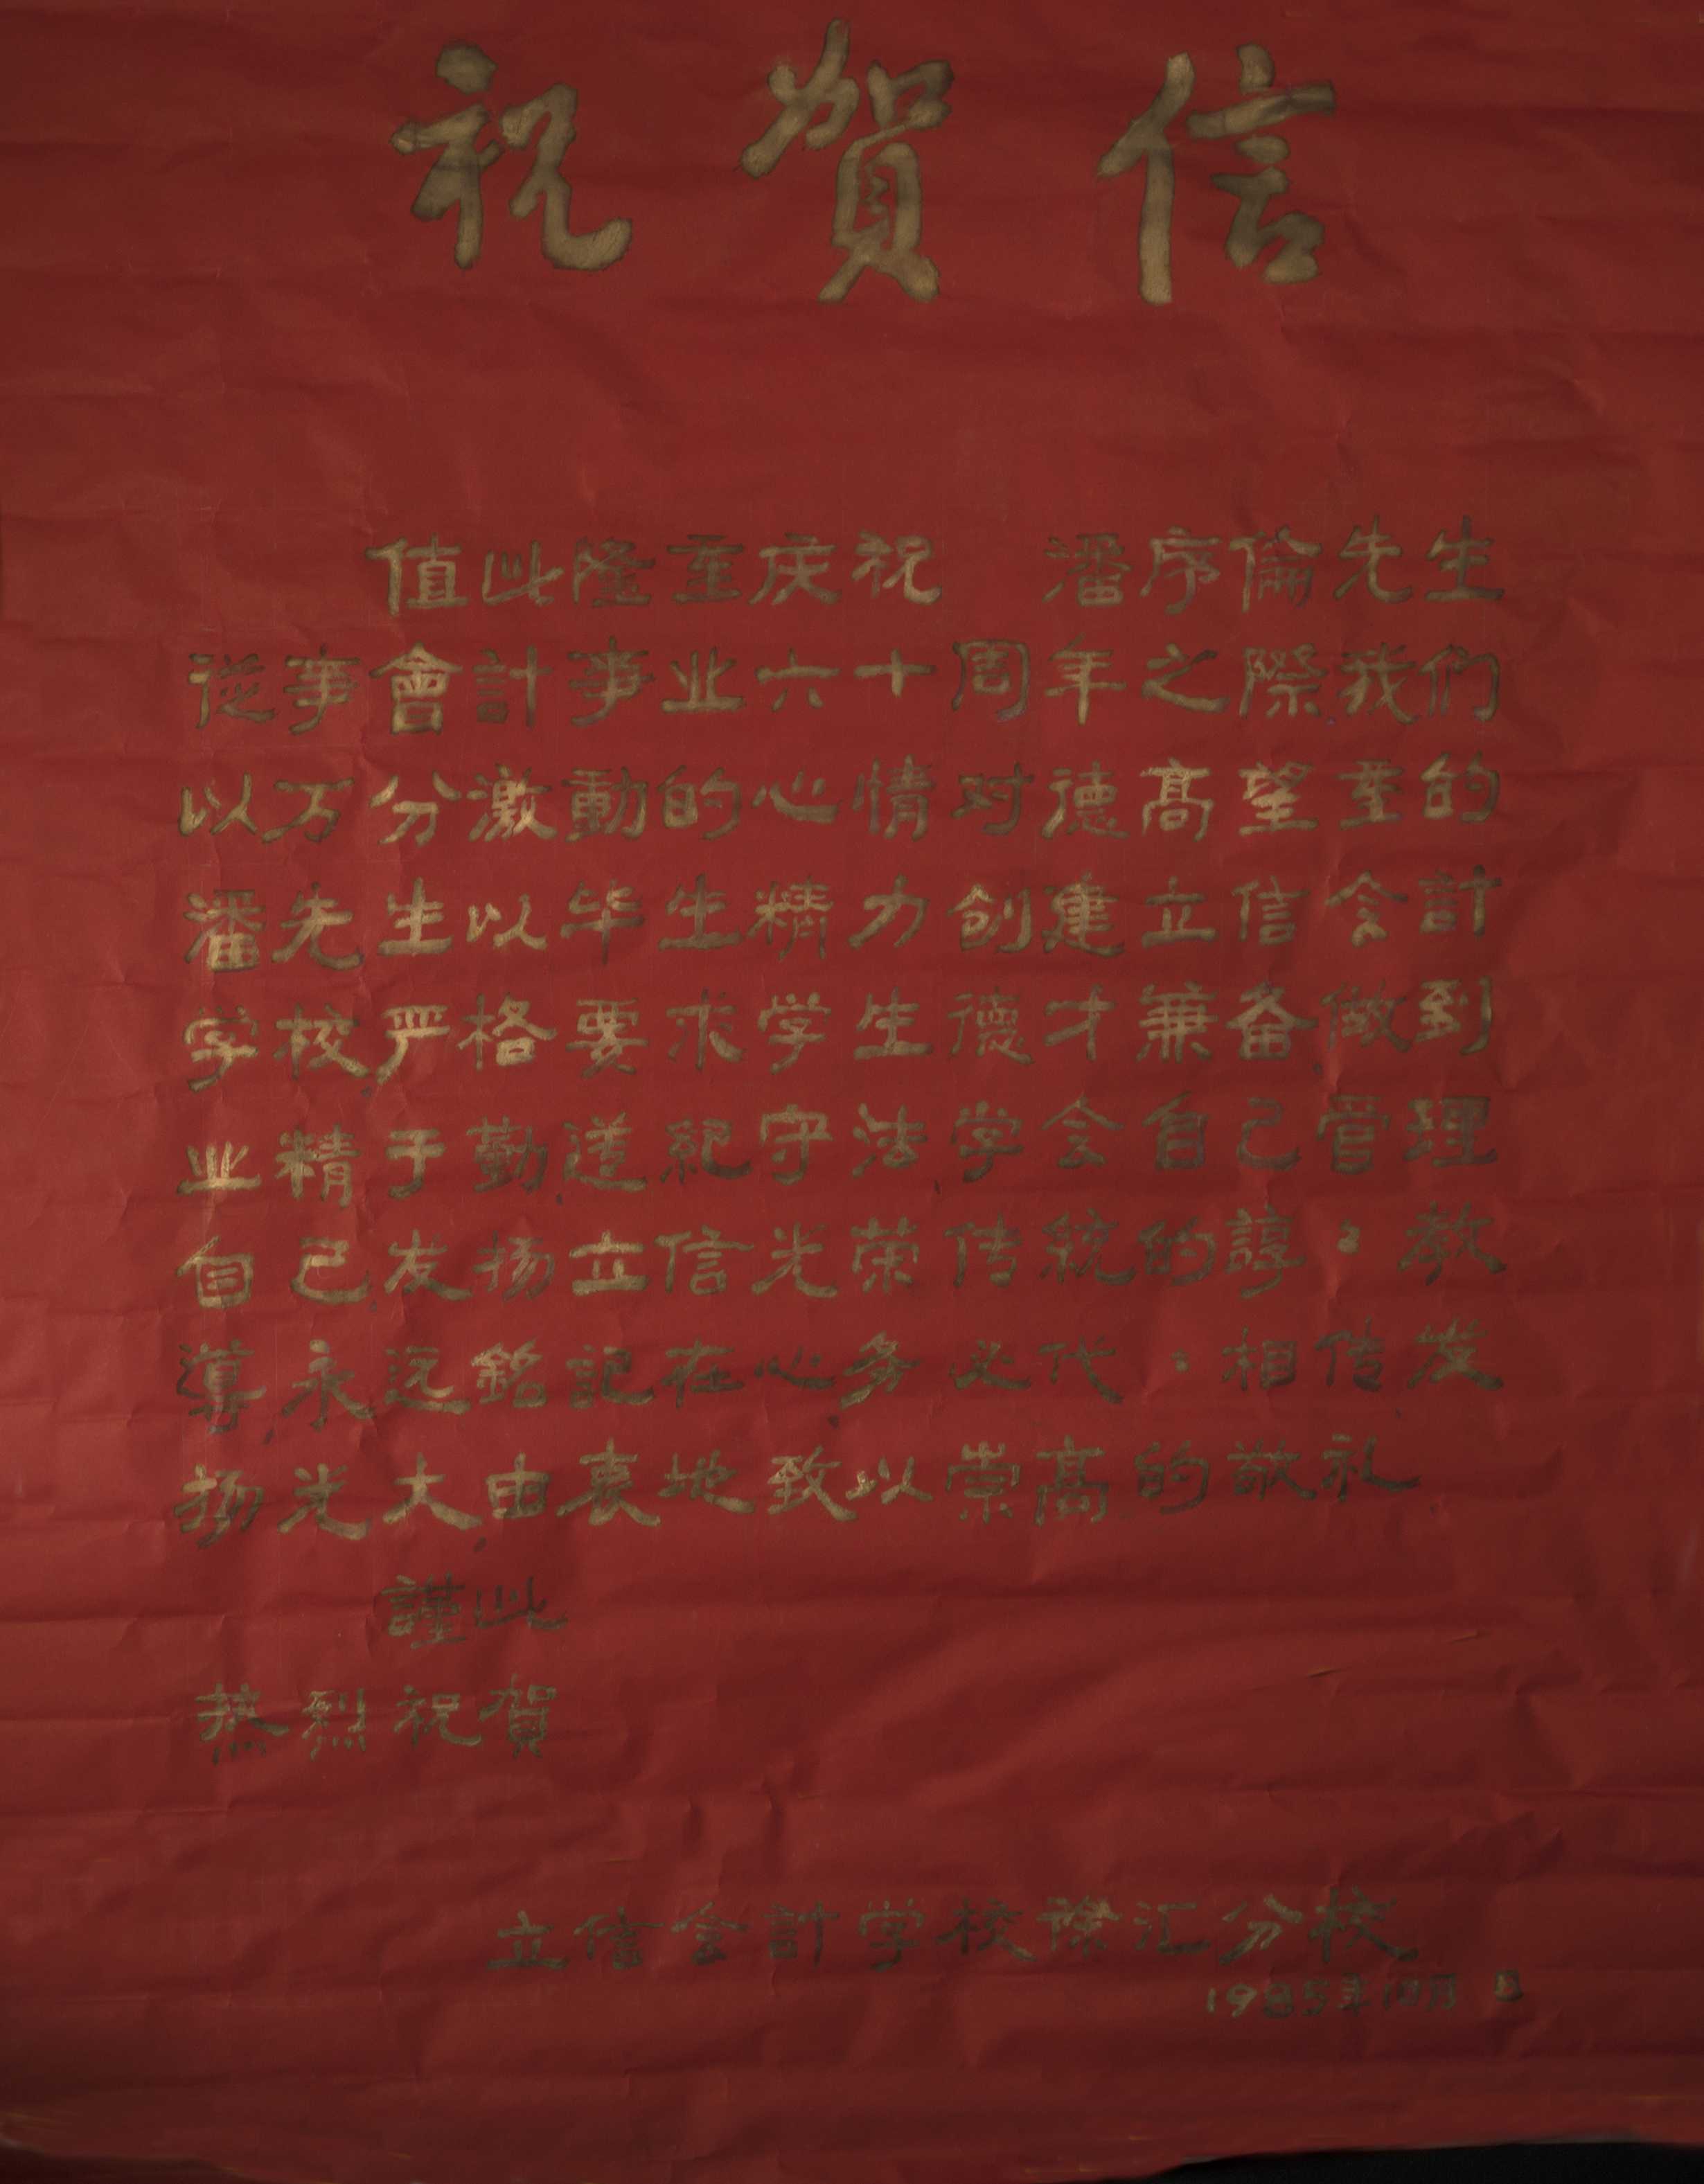 祝賀信
值此隆重庆祝 潘序倫先生
從事會計事业六十周年之際我們
以万分激動的心情对德高望重的
潘先生以毕生精力创建立信会計
学校严格要求学生德才兼备,做到
业精于勤,遵纪守法,学会自己管理
自己,发扬立信光荣传統的諄々教
導,永远銘記在心,务必代々相传,发
扬光大,由衷地致以崇高的敬礼
謹此
热烈祝賀
立信会計学校徐汇分校
1985年10月 日